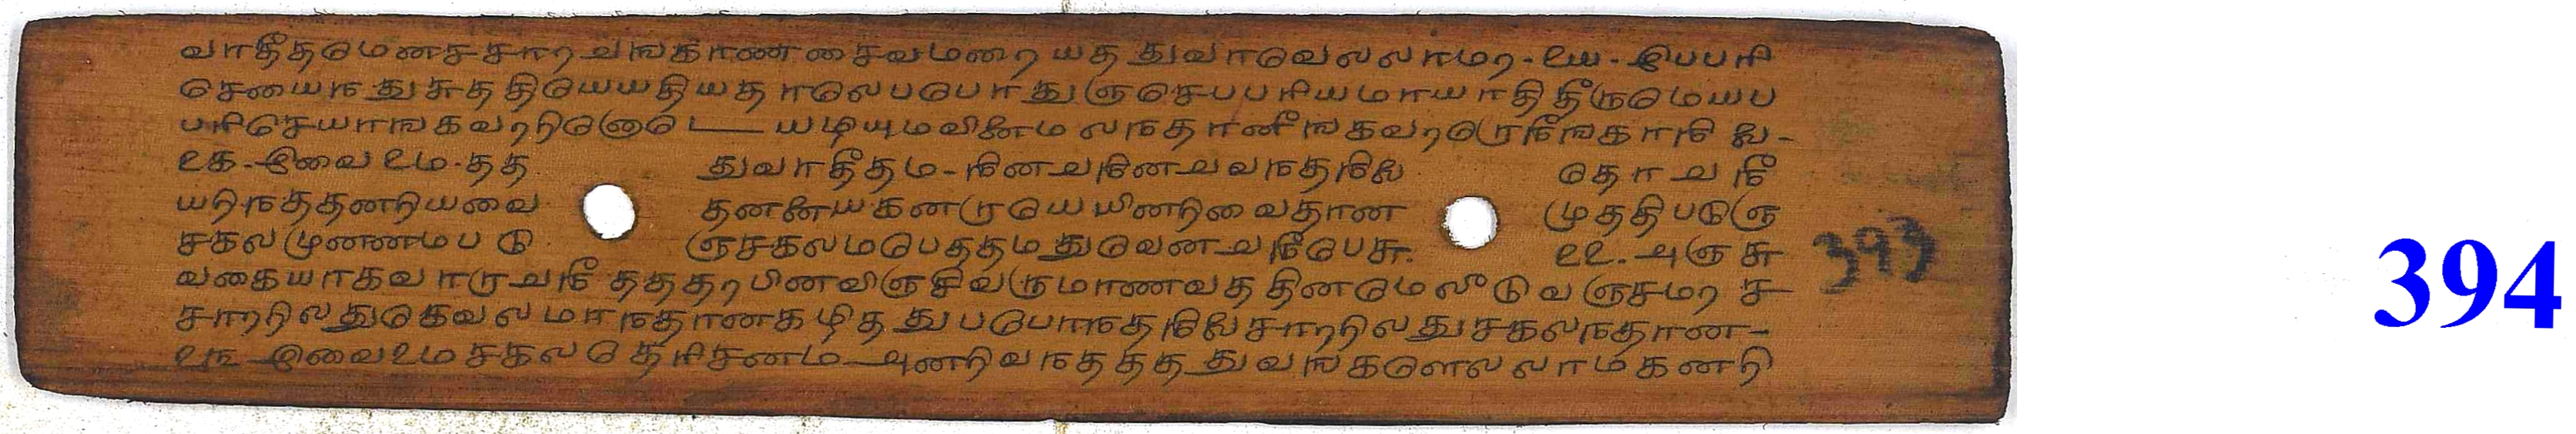 வாதீதமெனசசாரவஙகாண சைவமறை யதத துவாவெலலாமற- ௨ய - இபபரி
செயைநதுசுததியெயயதியதாலெபபொதுஞசெபபரியமாயாதிதீருமெயப
பரிசெயாஙகவறறினொட யழியுமவினைமலநதானீஙகவறறெநீஙகாநிலை-
௨க - இவை ௨ம - தத துவாதீதம - நினைவநினைவவநதநிலை தொவநீ
யறிநதததனறியவை தனனையகனருயெயினறிவைதான முததிபடுஞ
சகலமுனனமபடு ஞசகலமபெததமதுவெனவநீபெசு. ௨௨ - அஞசு
வகையாகவாருவநீ தததறபினவிஞசிவருமாணவததினமெலீடுவஞசமற ச
சாறறிலதுகெவலமாநதானகழிததுபபொநதநிலைசாறறிலதுசகலநதான-
௨௩ இவை ௨ம சகலதெரிசனம அனறிவநததததுவஙகளெலலாமகனறி
393
394